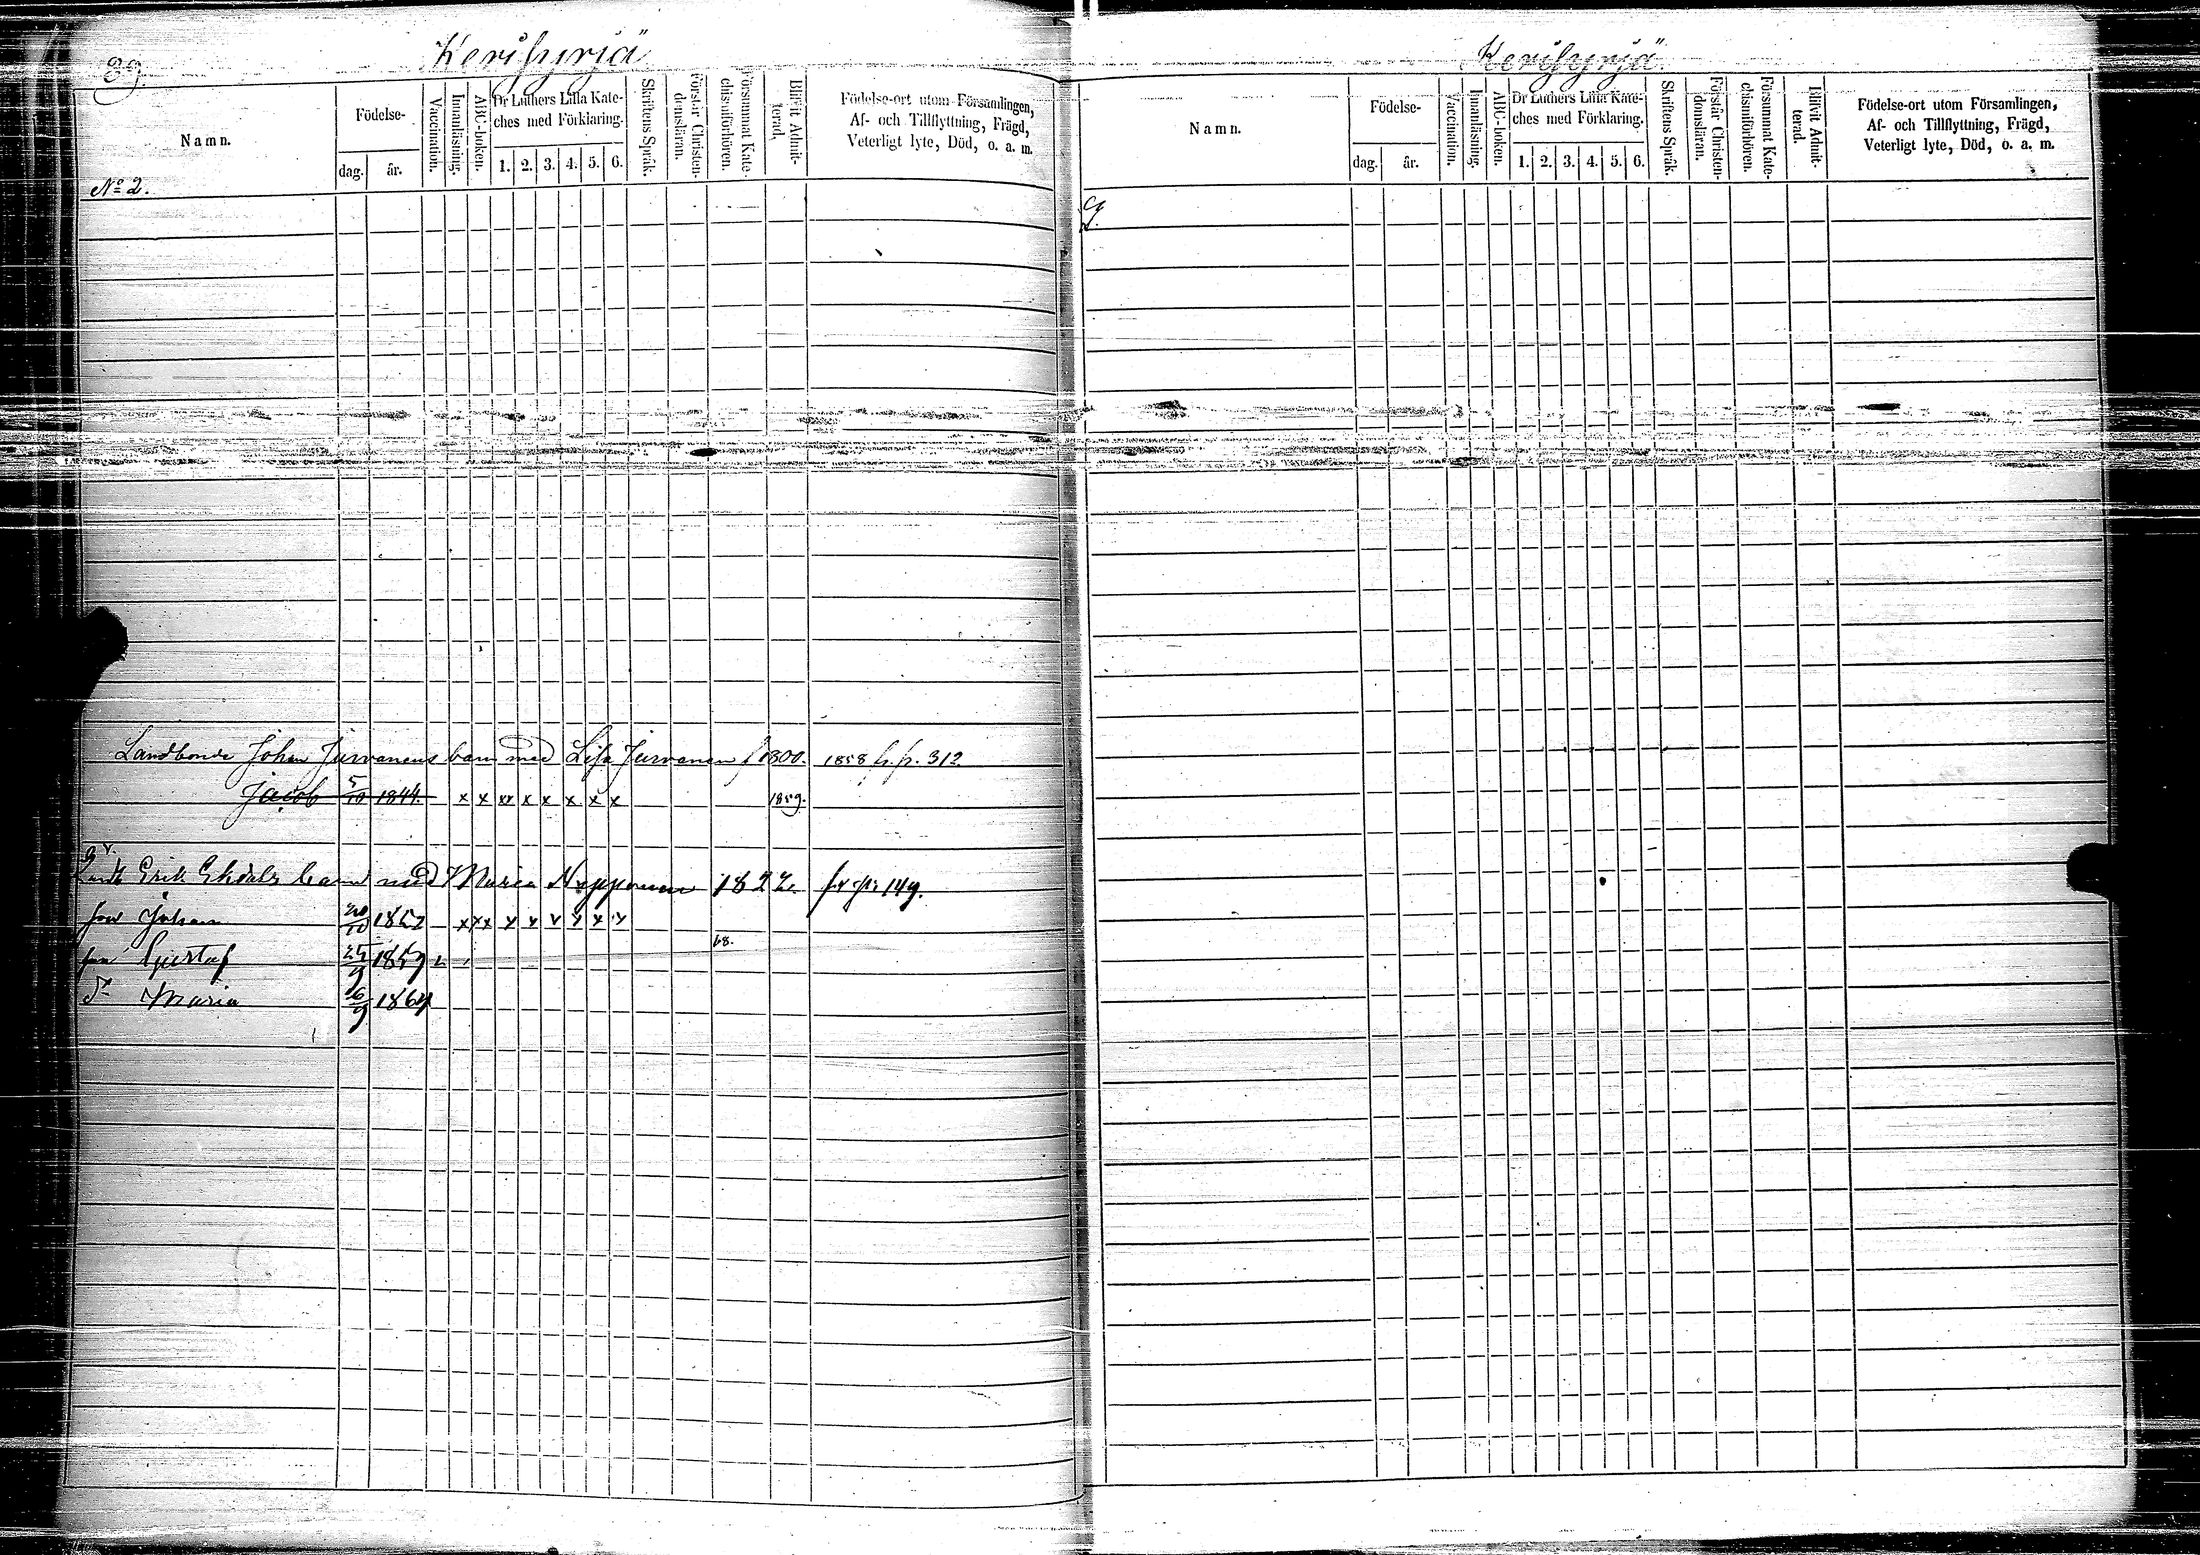 39.
Kerisyrjä
Namn.
Födelse-
dag.
år.
Vaccination.
Innanläsning.
ABC-boken.
Dr Luthers Lilla Kate-
ches med Förklaring.
1. 2. 3. 4. 5. 6.
Skriftens Språk.
Förstår Christen-
domsläran.
Försummat Kate-
chismiförhören.
Blifvit Admit-
terad.
Födelse-ort utom Församlingen,
Af- och Tillflyttning, Frägd,
Veterligt lyte, Död, o. a. m.
No 2.
Landbonde Johan Jurvanens barn med Lisa Jurvanen f 1800. 1858 fr. p. 312
Jacob 5/10 1844. x x xx x x x x x 1859.
Landb Erik Ekdals barn med Maria Nypponen 1822. fr p: 149.
son Johan 20/10 1857 x x x x x v x x x
68.
son Gustaf 25/9 1859
dr Maria 6/9 1864
Kerisyrjä
Namn.
Födelse-
dag.
år.
Vaccination.
Innanläsning.
ABC-boken.
Dr Luthers Lilla Kate-
ches med Förklaring.
1. 2. 3. 4. 5. 6.
Skriftens Språk.
Förstår Christen-
domsläran.
Försummat Kate-
chismiförhören.
Blifvit Admit-
terad.
Födelse-ort utom Församlingen,
Af- och Tillflyttning, Frägd,
Veterligt lyte, Död, o. a. m.